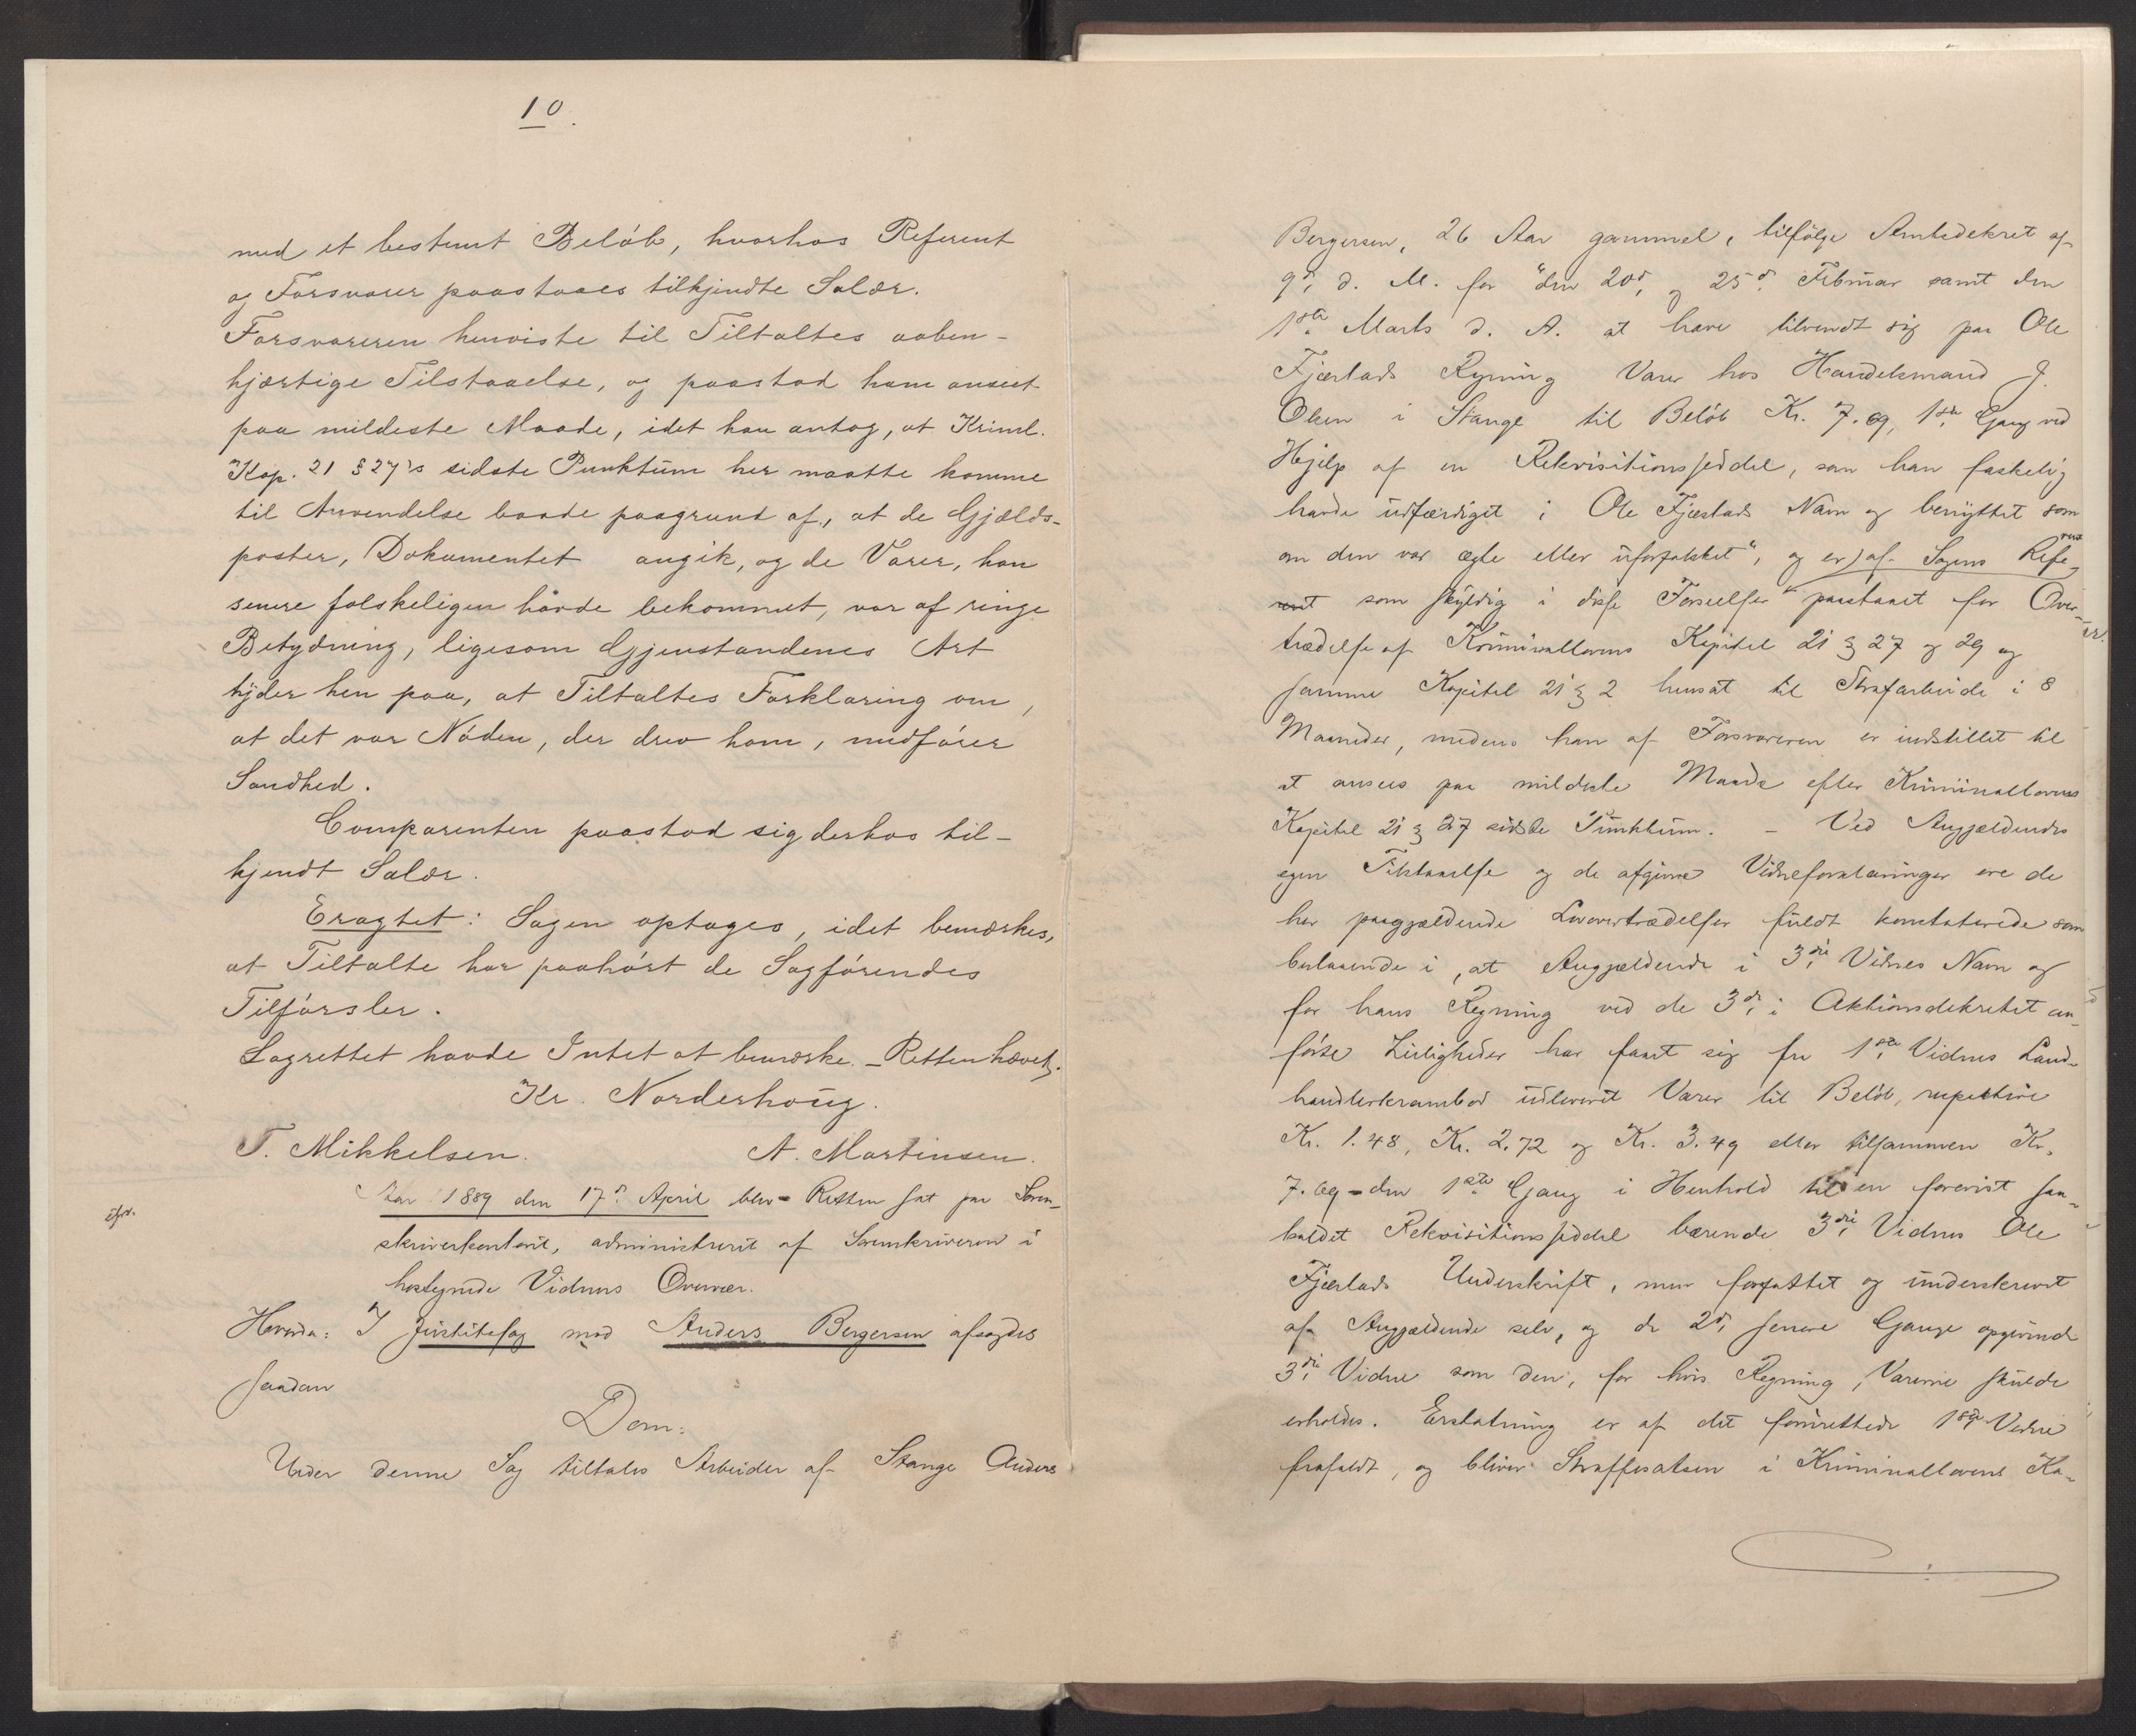 10.
med et bestemt Beløb, hvorhos Referent
og Forsvarer paastaaes tilkjendte Salær.
Forsvareren henviste til Tiltaltes aaben-
hjærtige Tilstaaelse, og paastod ham anseet
paa mildeste Maade, idet han antog, at Kriml.
Kap. 21 § 27's sidste Punktum her maatte komme
til Anvendelse baade paagrund af, at de Gjælds-
poster, Dokumentet angik, og de Varer, han
senere falskeligen havde bekommet, var af ringe
Betydning, ligesom Gjenstandenes Art
tyder hen paa, at Tiltaltes Forklaring om,
at det var Nøden, der drev ham, medfører
Sandhed.
Comparenten paastod sig derhos til-
kjendt Salær.
Eragtet: Sagen optages, idet bemærkes,
at Tiltalte har paahørt de Sagførendes
Tilførsler.
Lagrettet havde Intet at bemærke. – Retten hævet.
Kr. Norderhoug.
T. Mikkelsen. A. Martinsen.
Aar 1889 den 17d. April blev Retten sat paa Soren-
skriverkontoret, administreret af Sorenskriveren i
hostegnede Vidners Overvær.
Hvorda: I Justitssag mod Anders Bergersen afsagdes
saadan
Dom:
Under denne Sag tiltales Arbeider af Stange Anders
Bergersen, 26 Aar gammel, tilfølge Amtsdekret af
9d. d. M. for "den 20d. og 25d. Februar samt den
1ste Marts d. A. at have tilvendt sig paa Ole
Fjæstads Regning Varer hos Handelsmand J.
Olsen i Stange til Beløb Kr. 7.69, 1ste Gang ved
Hjelp af en Rekvisitionsseddel, som han falskelig
havde udfærdiget i Ole Fjæstads Navn og benyttet som
om den var ægte eller uforfalsket", og er af Sagens Refe-
rent som skyldig i disse Forseelser paastaaet for Over-
trædelse af Kriminallovens Kapitel 21 § 27 og 29 og
samme Kapitel 21 § 2 hensat til Strafarbeide i 8
Maaneder, medens han af Forsvareren er indstillet til
at ansees paa mildeste Maade efter Kriminallovens
Kapitel 21 § 27 sidste Punktum. – Ved Angjældendes
egen Tilstaaelse og de afgivne Vidneforklaringer ere de
her paagjældende Lovovertrædelser fuldt konstaterede som
bestaaende i, at Angjældende i 3die Vidnes Navn og
for hans Regning ved de 3de i Aktionsdekretet an-
førte Leiligheder har faaet sig fra 1ste Vidnes Land-
handlerkrambod udleveret Varer til Beløb, respektive
Kr. 1.48, Kr. 2.72 og Kr. 3.49 eller tilsammen Kr.
7.69 – den 1ste Gang i Henhold til en forevist saa-
kaldet Rekvisitionsseddel bærende 3die Vidnes Ole
Fjæstads Underskrift, men forfattet og underskrevet
af Angjældende selv, og de 2de senere Gange opgivende
3die Vidne som den, for hvis Regning Varerne skulde
erholdes. Erstatning er af det fornærmede 1ste Vidne
frafaldt, og bliver Straffesatsen i Kriminallovens Ka-